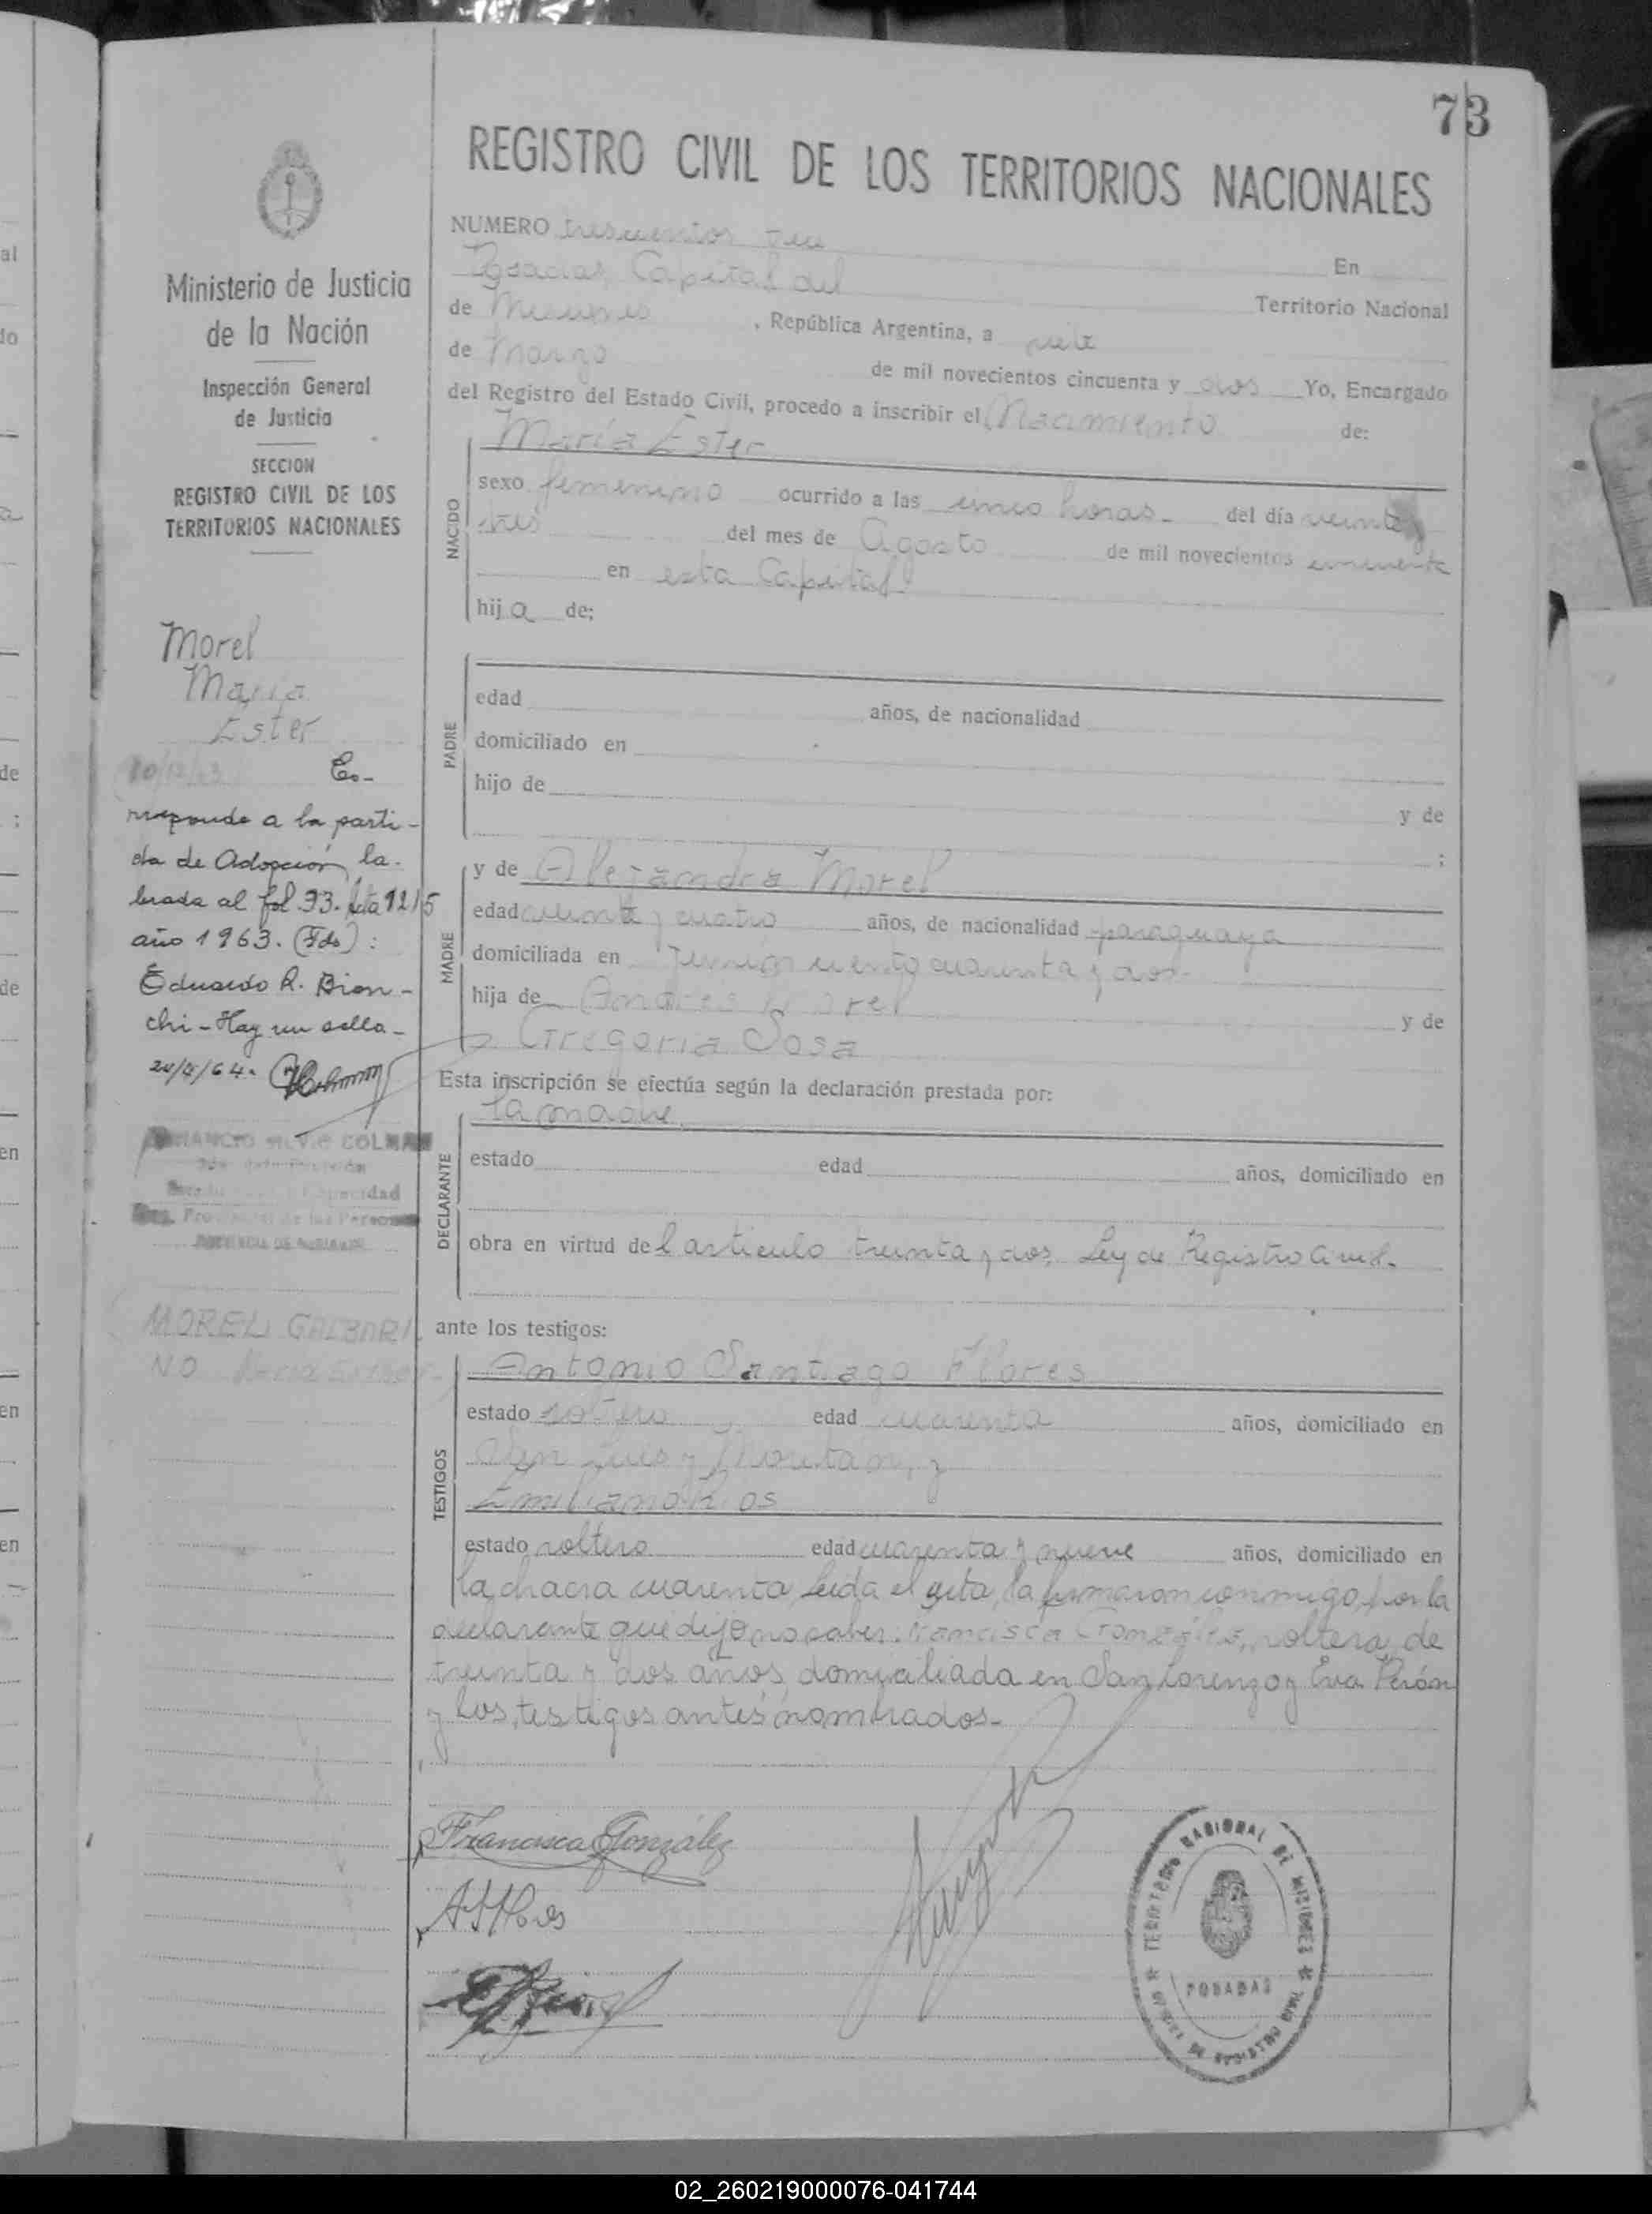 73
REGISTRO CIVIL DE LOS TERRITORIOS NACIONALES
Ministerio de Justicia
de la Nación
Inspección General
de Justicia
SECCION
REGISTRO CIVIL DE LOS
TERRITORIOS NACIONALES
Morel
María
Ester
Co-
rresponde a la parti-
da de Adopción, la-
brada al fol 93. Acta 1215
año 1963. (Fdo):
Eduardo R. Bian-
chi - Hay un sello -
MOREL GALBARI
NO
NUMERO trescientos
En
Posadas, Capital del
Territorio Nacional
de Misiones , República Argentina, a siete
de Marzo de mil novecientos cincuenta y dos Yo, Encargado
del Registro del Estado Civil, procedo a inscribir el Nacimiento de:
María Ester
NACIDO
sexo femenino ocurrido a las cinco horas- del día veinte y
tres del mes de Agosto de mil novecientos cincuenta
en esta Capital
hija de;
PADRE
edad años, de nacionalidad
domiciliado en
hijo de
y de
;
MADRE
y de Alejandra Morel
edad veinte y cuatro años, de nacionalidad paraguaya
domiciliada en Junin ciento cuarenta y dos-
hija de Andrés Morel
y de
Gregoria Sosa
Esta inscripción se efectúa según la declaración prestada por:
la madre
DECLARANTE
estado edad años, domiciliado en
obra en virtud del artículo treinta y dos, Ley de Registro Civil.
ante los testigos:
TESTIGOS
Antonio Santiago Flores
estado soltero edad cuarenta años, domiciliado en
San Luis y
Emiliano Rios
estado soltero edad cuarenta y nueve años, domiciliado en
la chacra cuarenta, Leida el acta, la firmaron conmigo, por la
declarante que dijo no saber: Francisca González, soltera, de
treinta y dos años, domiciliada en San Lorenzo y Eva Perón
y los testigos antes nombrados-
Francisca González
ASFlores
TERRITORIO NACIONAL DE MISIONES
POSADAS
02_260219000076-041744